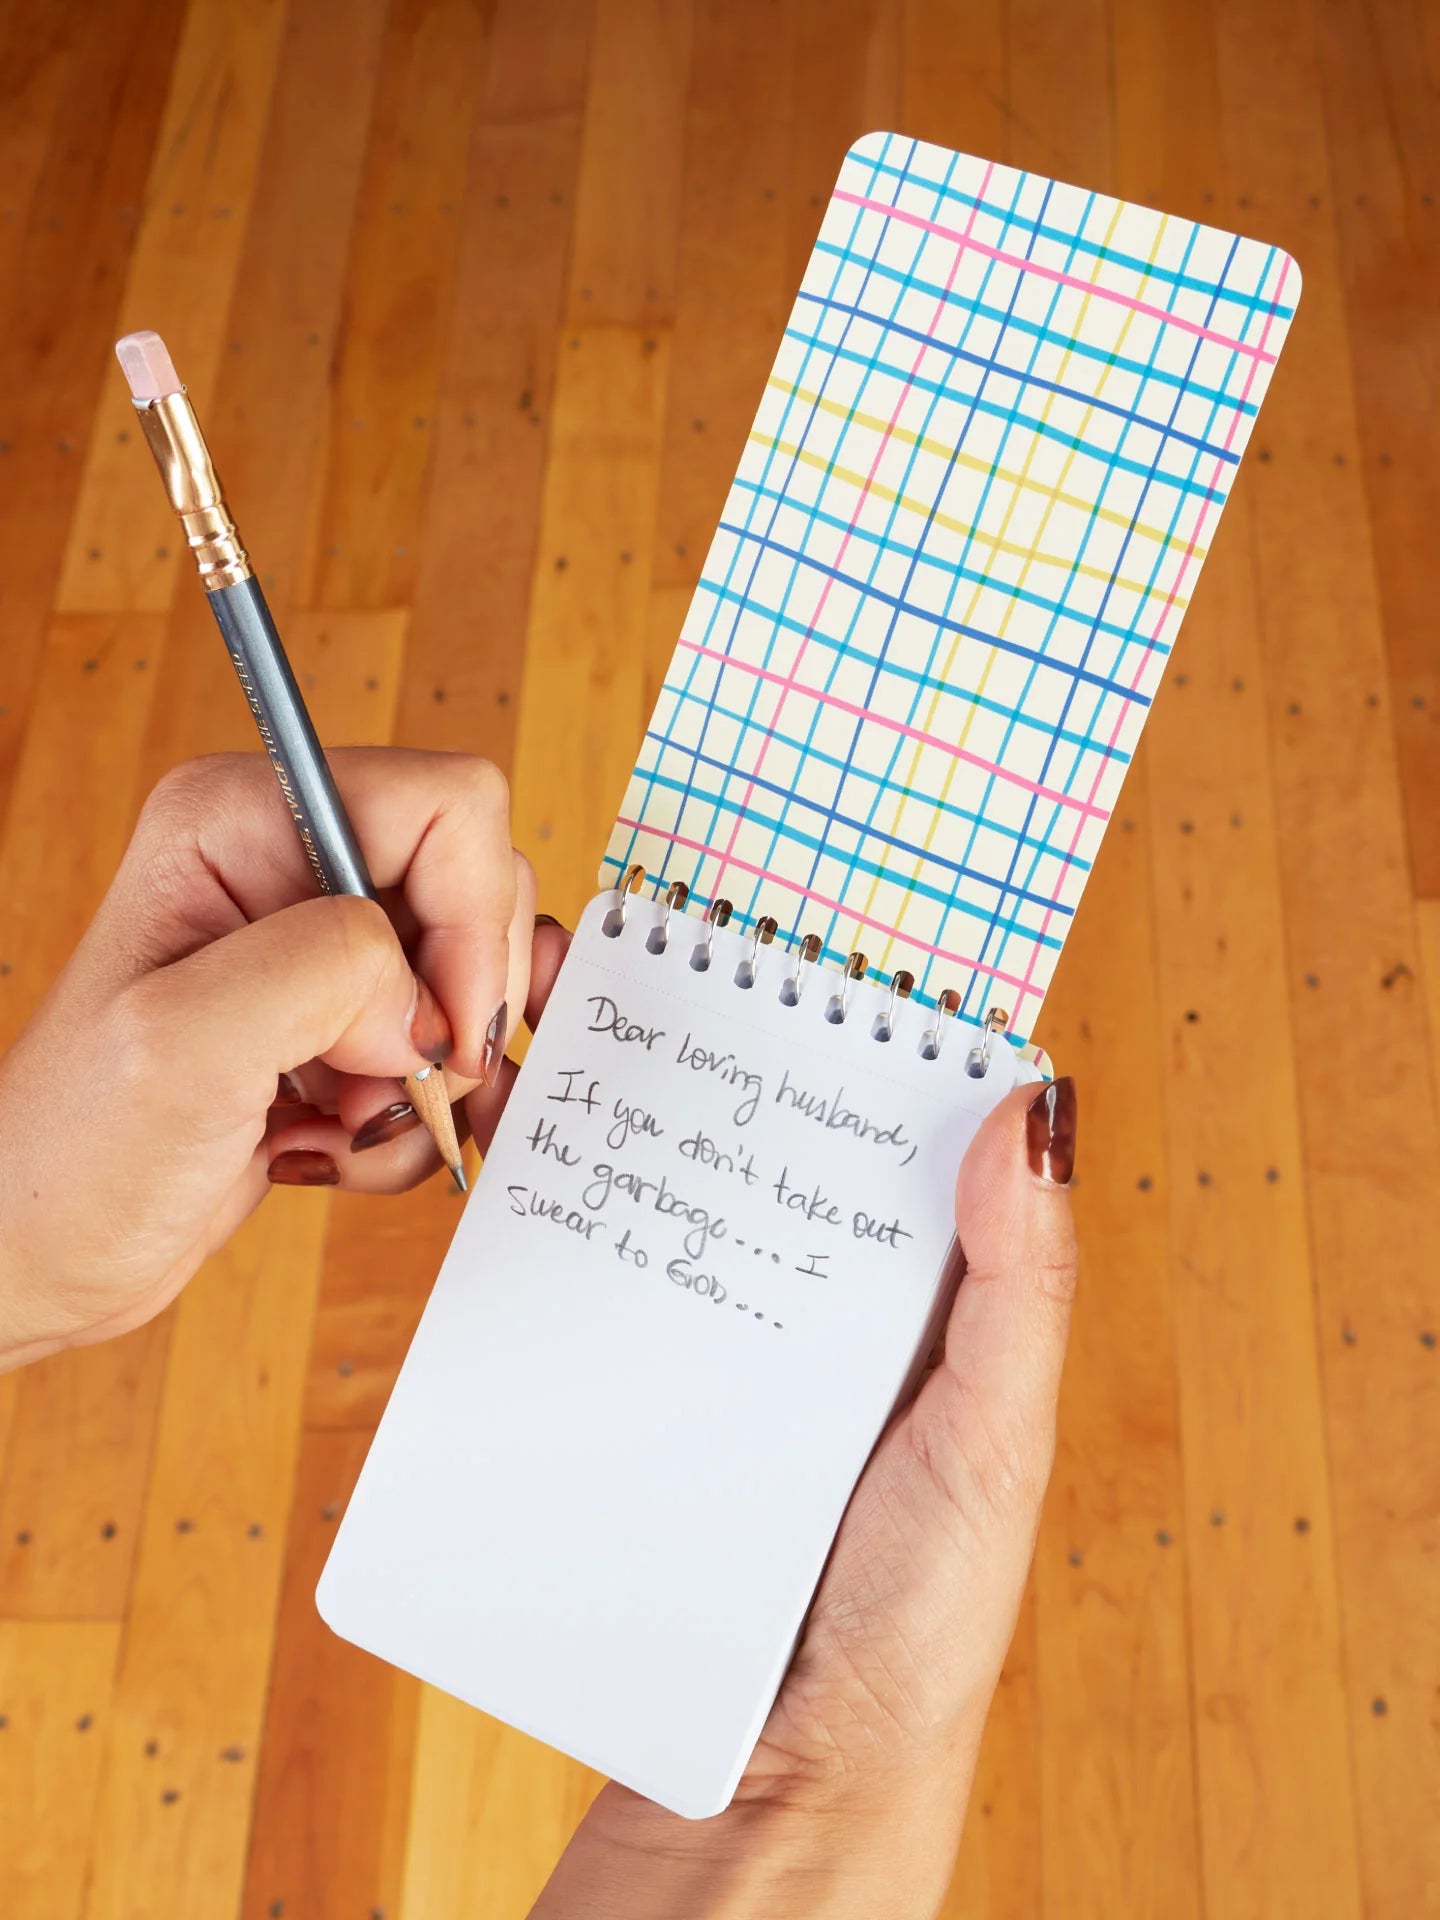 HALF THE PRESSURE, TWICE THE SPEED
Dear loving husband,
If you don't take out
the garbage... I
swear to GOD...